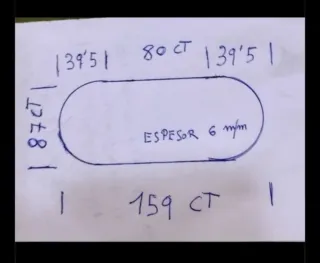 |39'5| 80 CT |39'5|
|87 CT|
ESPESOR 6 m/m
| 159 CT |